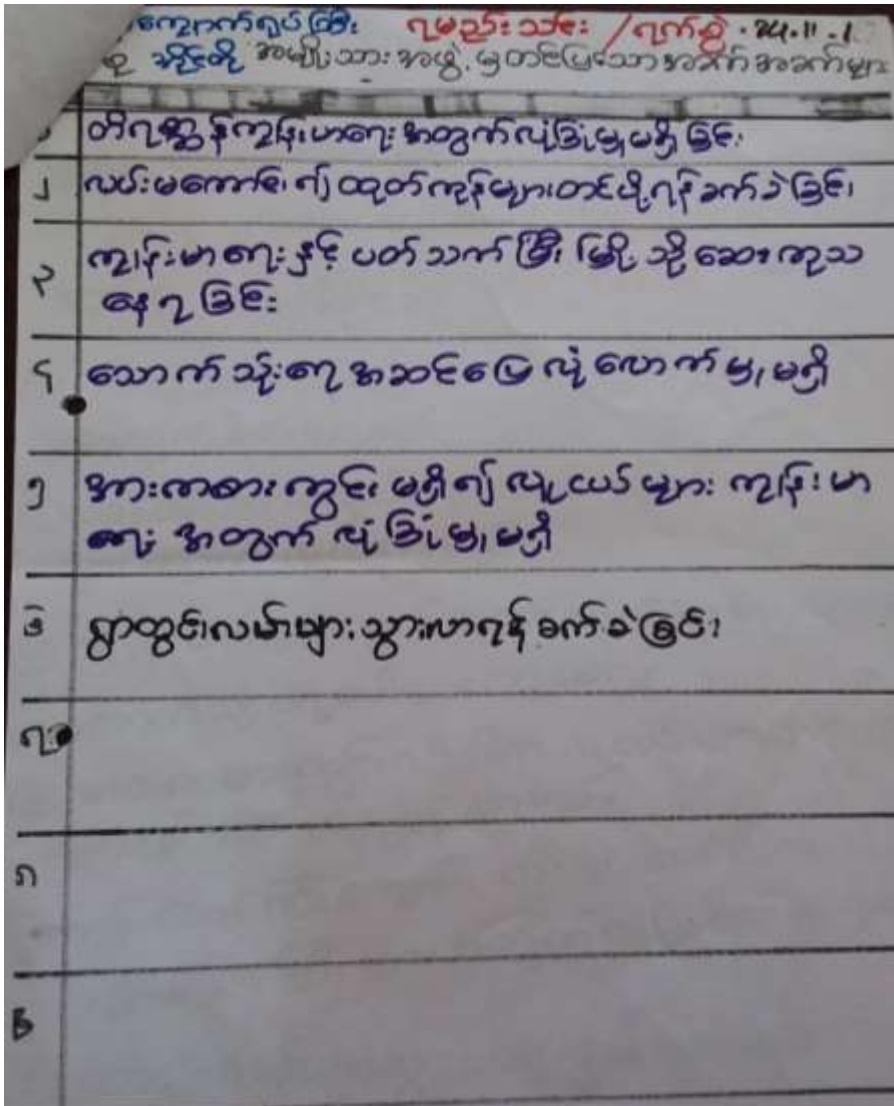 ကျောက်ရုပ်ကြီး ရမည်းသင်း / ရက်စွဲ . 24.11.1
အမျိုးသားအဖွဲ့မှတင်ပြသောအခက်အခက်များ
တိရစ္ဆာန်ကျန်းမာရေးအတွက်လုံခြုံမှုမရှိခြင်း
၂ လမ်းမကောင်း၍ ထုတ်ကုန်များတင်ပို့ရန်ခက်ခဲခြင်း
၃ ကျန်းမာရေးနှင့် ပတ်သက်ပြီး မြို့သို့ ဆေးကုသ
နေရခြင်း
၄ သောက်သုံးရေအဆင်ပြေလုံလောက်မှုမရှိ
၅ အားကစားကွင်းမရှိ၍ လူငယ်များ ကျန်းမာ
ရေး အတွက် လုံခြုံမှုမရှိ
၆ ရွာတွင်းလမ်းများသွားလာရန်ခက်ခဲခြင်း
၇
၈
၉